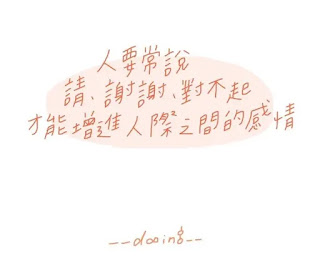 人要常說
請、謝謝、對不起
才能增進人際之間的感情
--dooing--